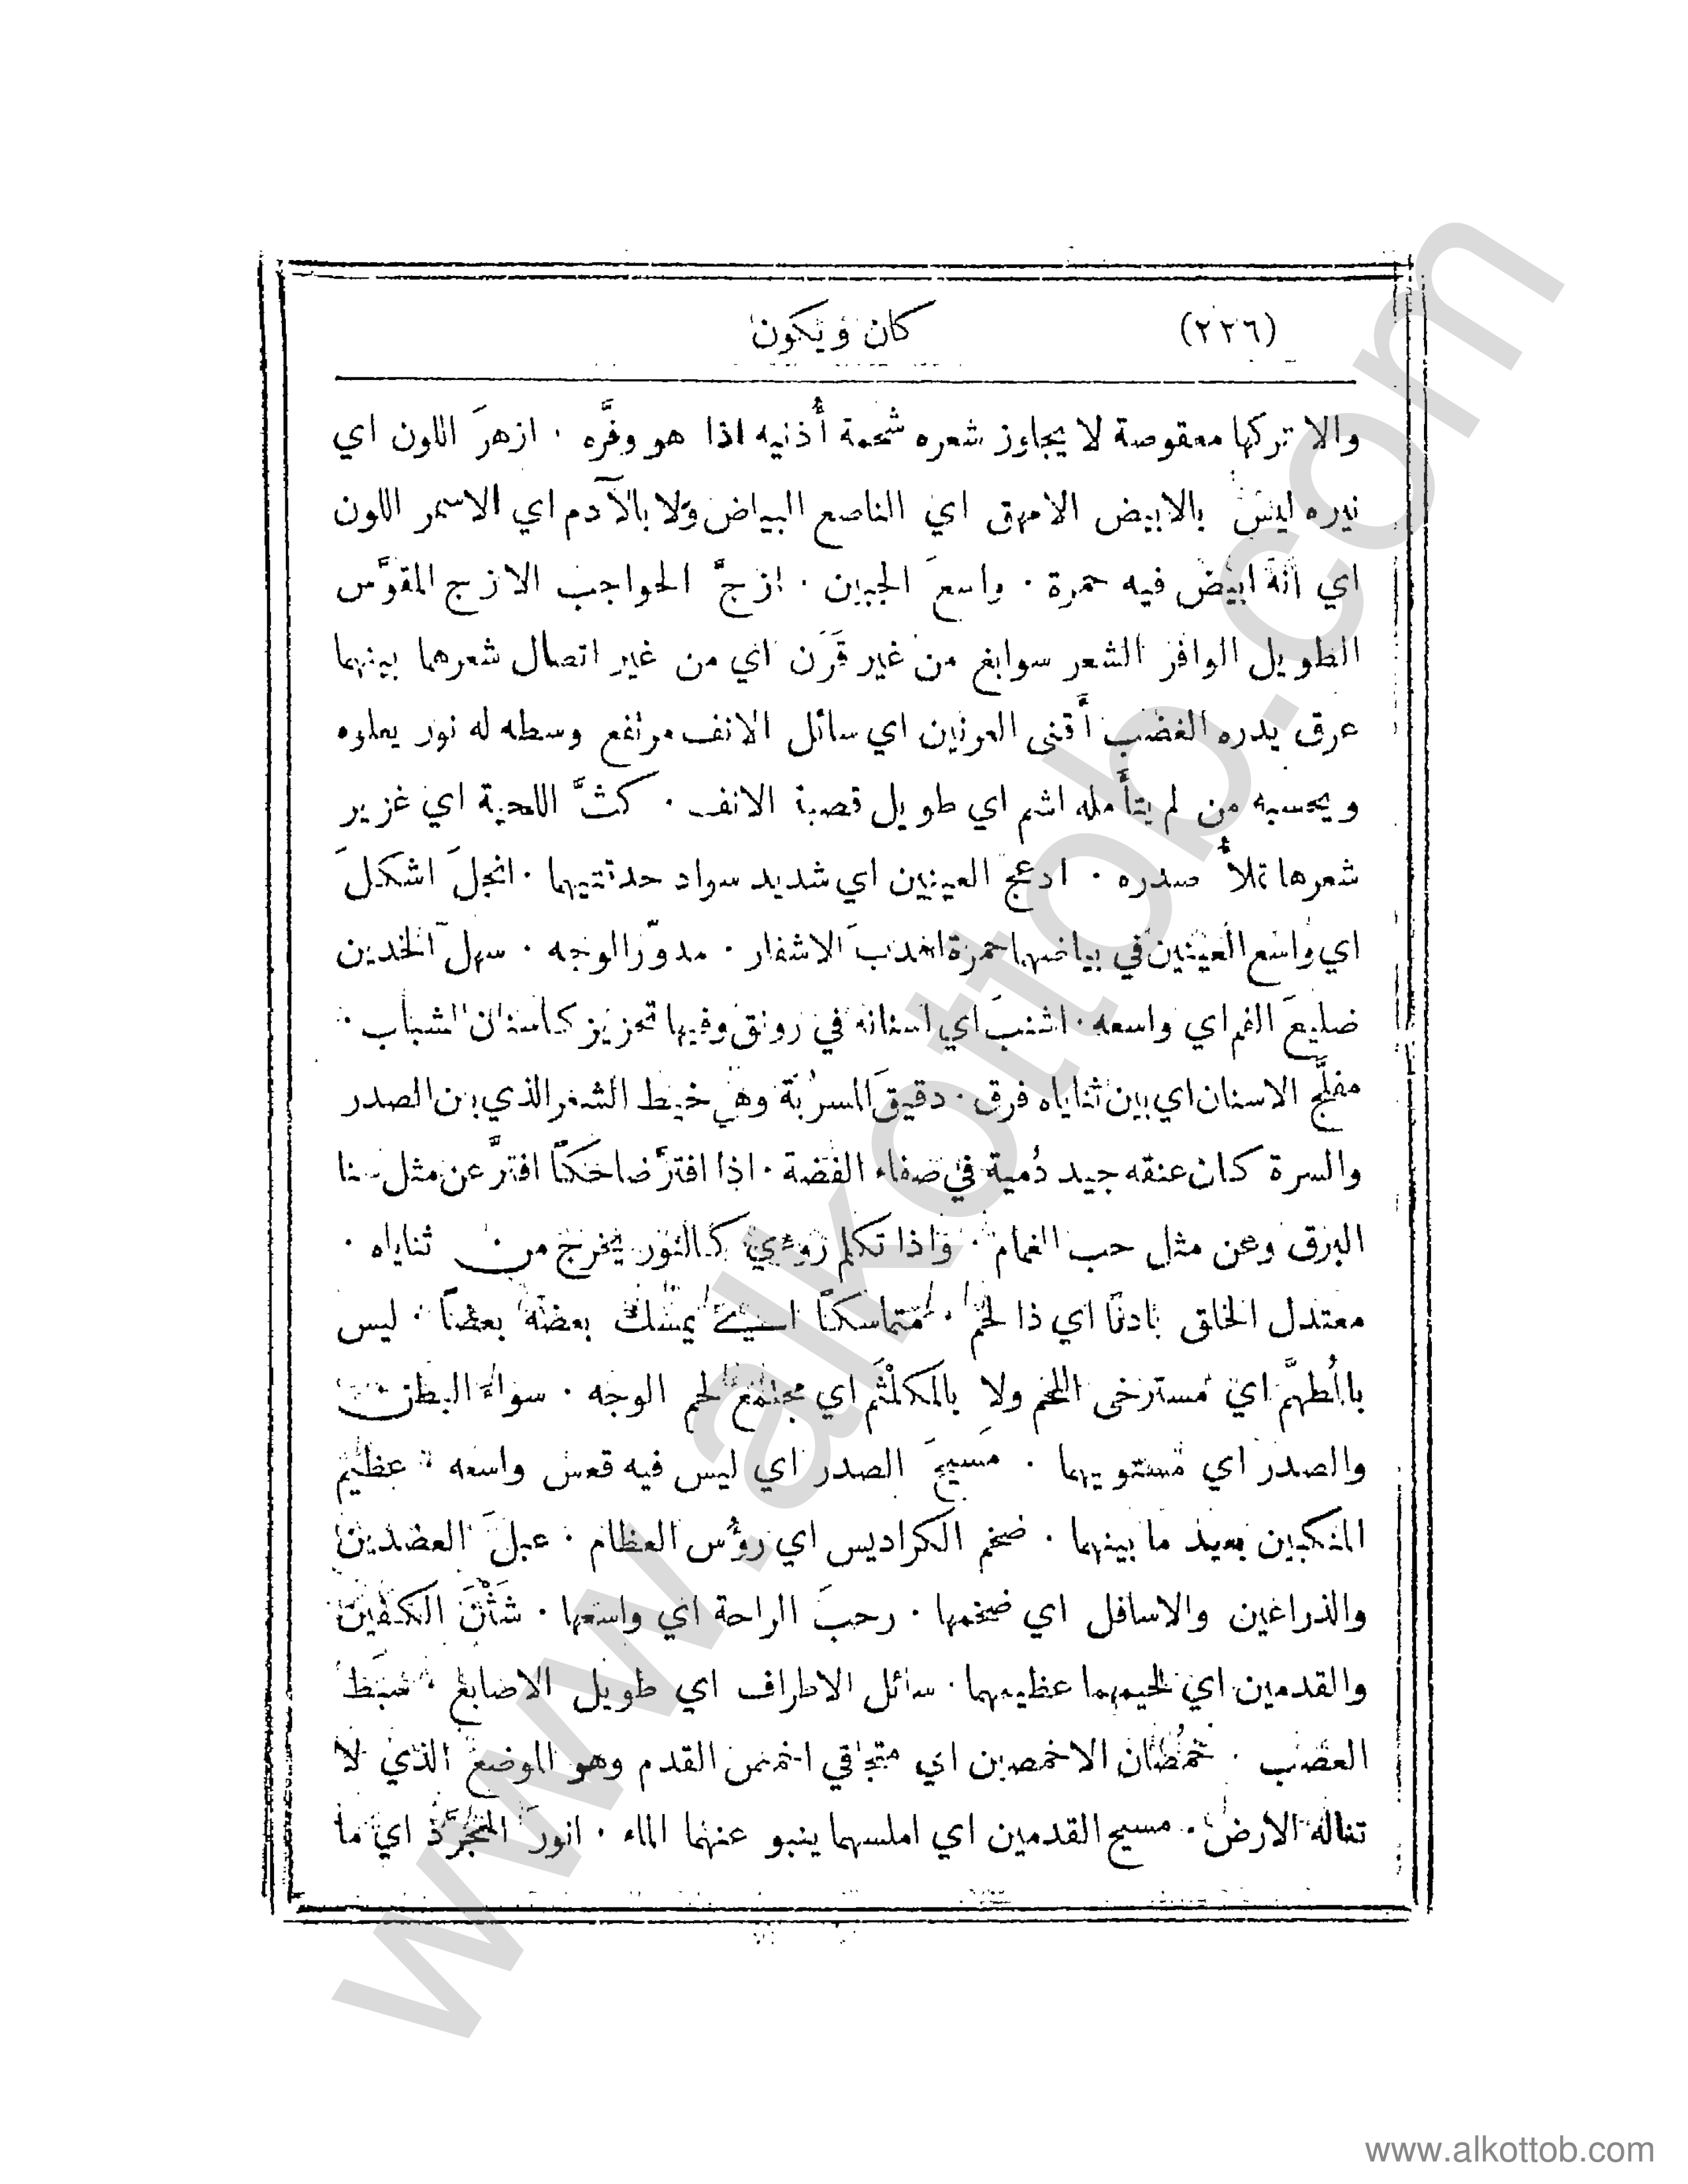 (٢٢٦) كان ويكون
والا تركها معقوصة لا يجاوز شعره شحمة أُذنيه اذا هو وفَّره . ازهرَ اللون اي
نيره ليس بالابيض الامهق اي الناصع البياض ولا بالآدم اي الاسمر اللون
اي انه ابيض فيه حمرة . واسعَ الجبين . ازجَّ الحواجب الازج المقوَّس
الطويل الوافر الشعر سوابغ من غير قَرَن اي من غير اتصال شعرهما بينهما
عرق يدره الغضب أقنى العرنين اي سائل الانف مرتفع وسطه له نور يعلوه
ويحسبه من لم يتأمله اشم اي طويل قصبة الانف . كثَّ اللحية اي غزير
شعرها تملأ صدره . ادعج العينين اي شديد سواد حدقتيهما . انجلَ اشكلَ
اي واسع العينين في بياضهما حمرة اهدبَ الاشفار . مدوّر الوجه . سهل الخدين
ضليعَ الفم اي واسعه . اشنبَ اي اسنانه في رونق وفيها تحزيز كاسنان الشباب .
مفلَّج الاسنان اي بين ثناياه فرق . دقيقَ المسرُبة وهي خيط الشعر الذي بين الصدر
والسرة كان عنقه جيد دُمية في صفاء الفضة . اذا افترَّ ضاحكاً افترَّ عن مثل سنا
البرق وعن مثل حب الغمام . واذا تكلم رؤي كالنور يخرج من ثناياه .
معتدل الخلق بادناً اي ذا لحم . متماسكاً اي يمسك بعضه بعضاً . ليس
بالمُطهَّم اي مسترخى اللحم ولا بالمكلْثَم اي مجتمع لحم الوجه . سواءَ البطن
والصدر اي مستويهما . مَسيحَ الصدر اي ليس فيه قعس واسعه . عظيم
المنكبين بعيد ما بينهما . ضخم الكراديس اي رؤُس العظام . عبلَ العضدين
والذراعين والاسافل اي ضخمها . رحبَ الراحة اي واسعها . شَثْنَ الكفين
والقدمين اي لحيمهما عظيمهما . سائل الاطراف اي طويل الاصابع . سَبَط
العصب . خمُصان الاخمصين اي متجافي اخمص القدم وهو الموضع الذي لا
تناله الارض . مسيح القدمين اي املسهما ينبو عنهما الماء . انورَ المتجرَّد اي ما
www.alkottob.com
www.alkottob.com